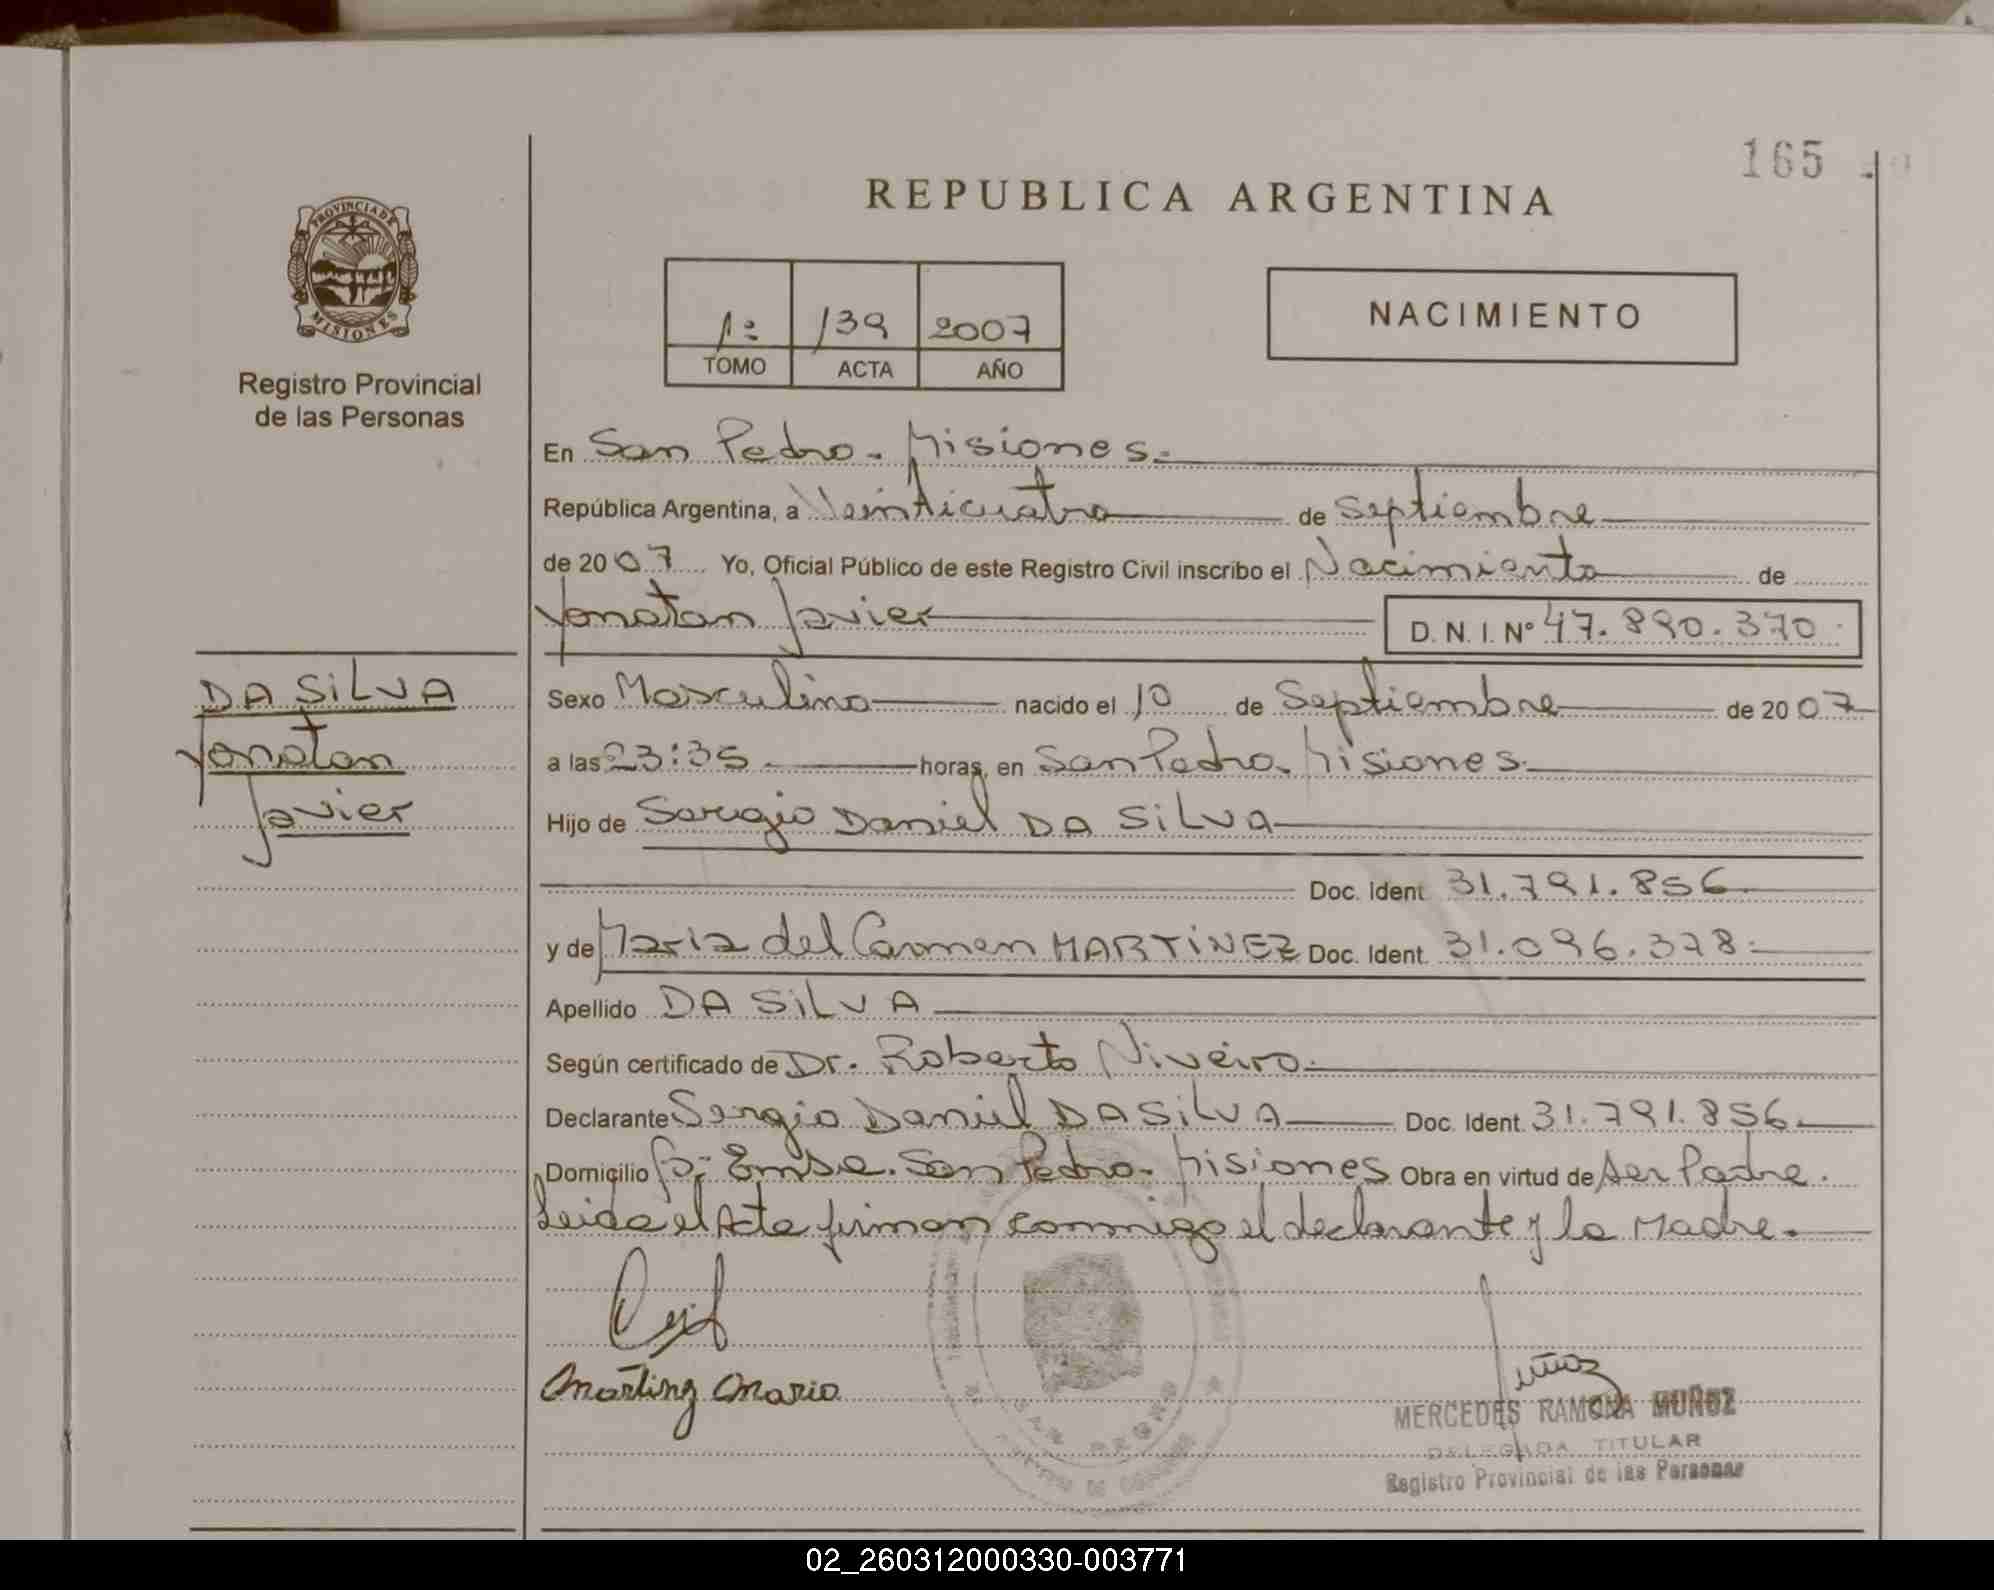 165
REPUBLICA ARGENTINA
PROVINCIA DE
MISIONES
Registro Provincial
de las Personas
1º 139 2007
TOMO ACTA AÑO
NACIMIENTO
En San Pedro - Misiones.-
República Argentina, a Veinticuatro de Septiembre
de 2007 Yo, Oficial Público de este Registro Civil inscribo el Nacimiento de
Yonatan Javier D. N. I. Nº 47.890.370.
DA SiLVA
Yonatan
Javier
Sexo Masculino nacido el 10 de Septiembre de 2007
a las 23:35 horas, en San Pedro - Misiones.
Hijo de Sergio Daniel DA SiLVA
Doc. Ident 31.791.856
y de Maria del Carmen MARTiNEZ Doc. Ident. 31.096.378.
Apellido DA SiLVA
Según certificado de Dr. Roberto Niveiro.
Declarante Sergio Daniel DA SiLVA Doc. Ident. 31.791.856
Domicilio San Pedro - Misiones Obra en virtud de ser Padre.
Leida el Acta firman conmigo el declarante y la Madre.
Martinz Maria
Muñoz
MERCEDES RAMONA MUÑOZ
DELEGADA TITULAR
Registro Provincial de las Personas
SAN PEDRO
02_260312000330-003771